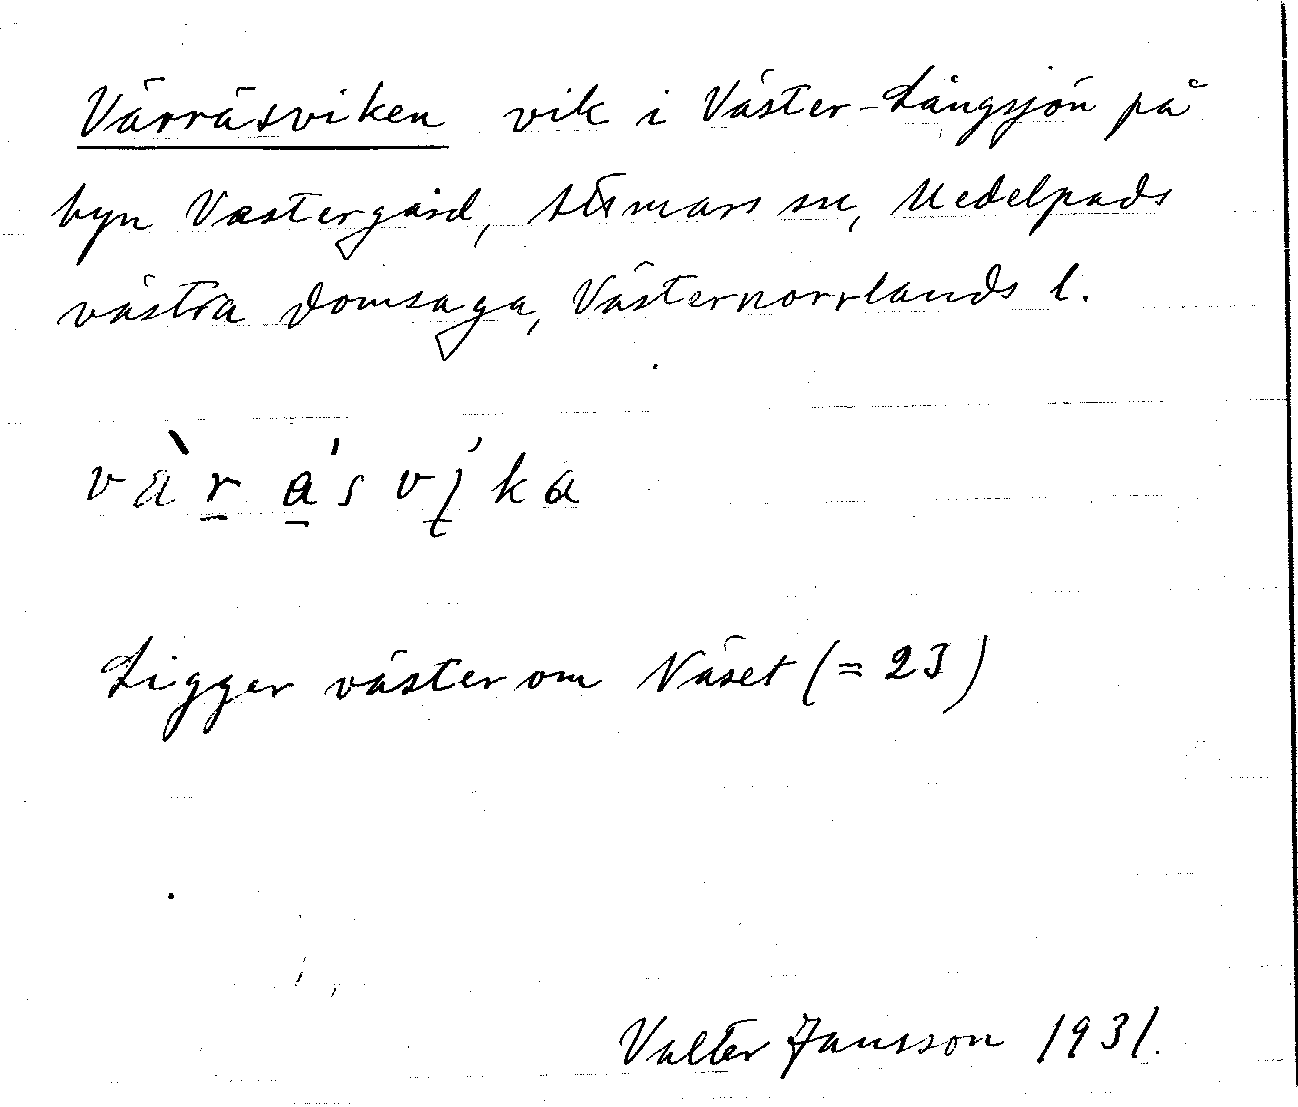 Värräsviken vik i Väster-Långsjön på
byn Västergård, Attmars sn, Medelpads
västra domsaga, Västernorrlands l.
Ligger väster om Näset (= 23)
Valter Jansson 1931.